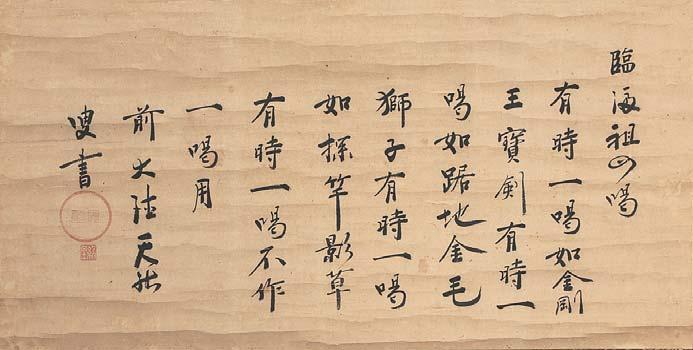 臨濟祖四喝
有時一喝如金剛
王寶劍有時一
喝如踞地金毛
獅子有時一喝
如探竿影草
有時一喝不作
一喝用
前大天
叟書